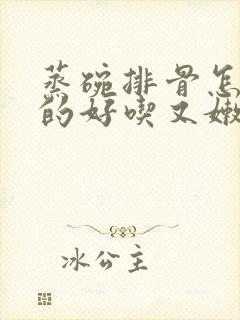 蒸碗排骨怎
的好喫又嫩
冰公主